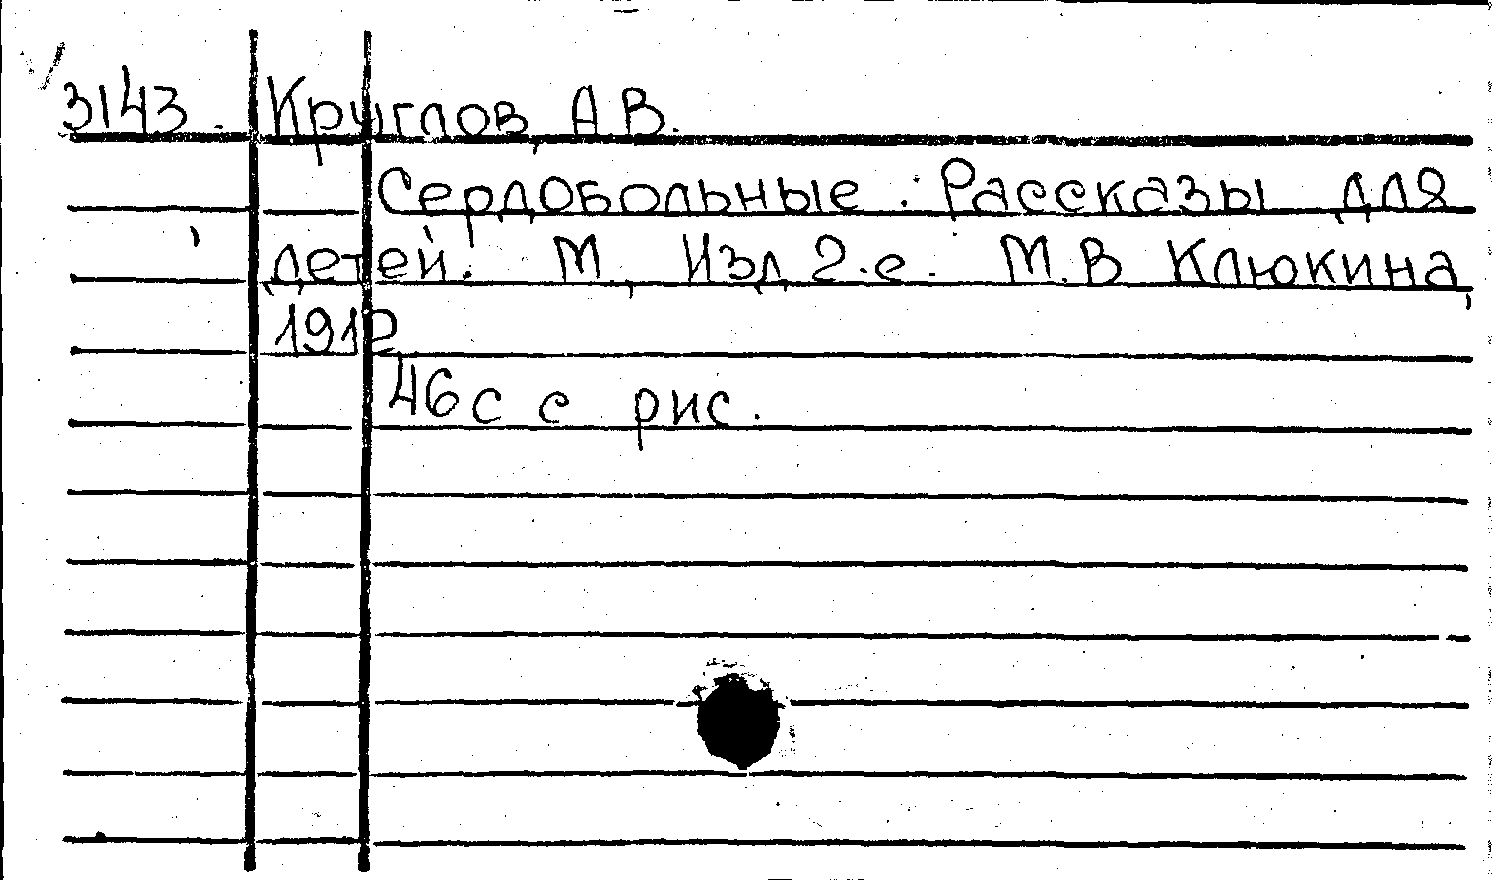 3143. Круглов, А В.
Сердобольные. Рассказы для
детей. М, Изд 2-е. М.В Клюкина,
1912
46с с рис.